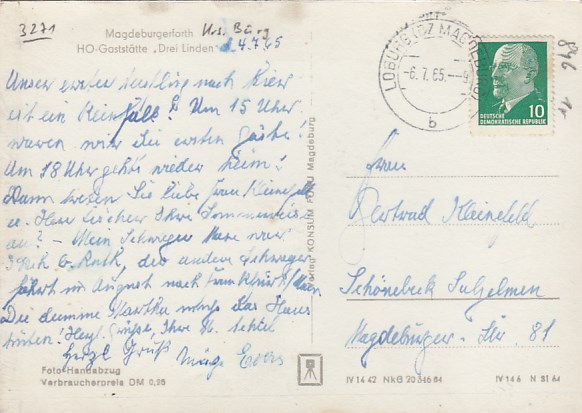 3271
Magdeburgerforth Krs. Burg
HO-Gaststätte „Drei Linden" d 4.7.65
Unser erster nach hier
ist ein Reinfall! Um 15 Uhr
waren wir die ersten Gäste!
Um 18 Uhr gehts wieder heim!
Wann treten Sie liebe Frau Kleinefeld
u. Herr Ihre Sommerreise
an? – Mein Schwager
b. Ruth, der andere Schwager
fährt im August nach Frankfurt/Main
Die dumme Martha muss das Haus
hüten! Herzl. Grüße, Ihre M.
Herzl. Grüß
Foto-Handabzug
Verbraucherpreis DM 0,95
Verlag KONSUM FOKU Magdeburg
LOBURG (BZ MAGDEBURG)
-6.7.65.--9
b
10
DEUTSCHE
DEMOKRATISCHE REPUBLIK
Kleinefeld
Schönebeck Salzelmen
Magdeburger-Str 81
IV 14 42 NkG 20 346 64
IV 14 6 N 31 64